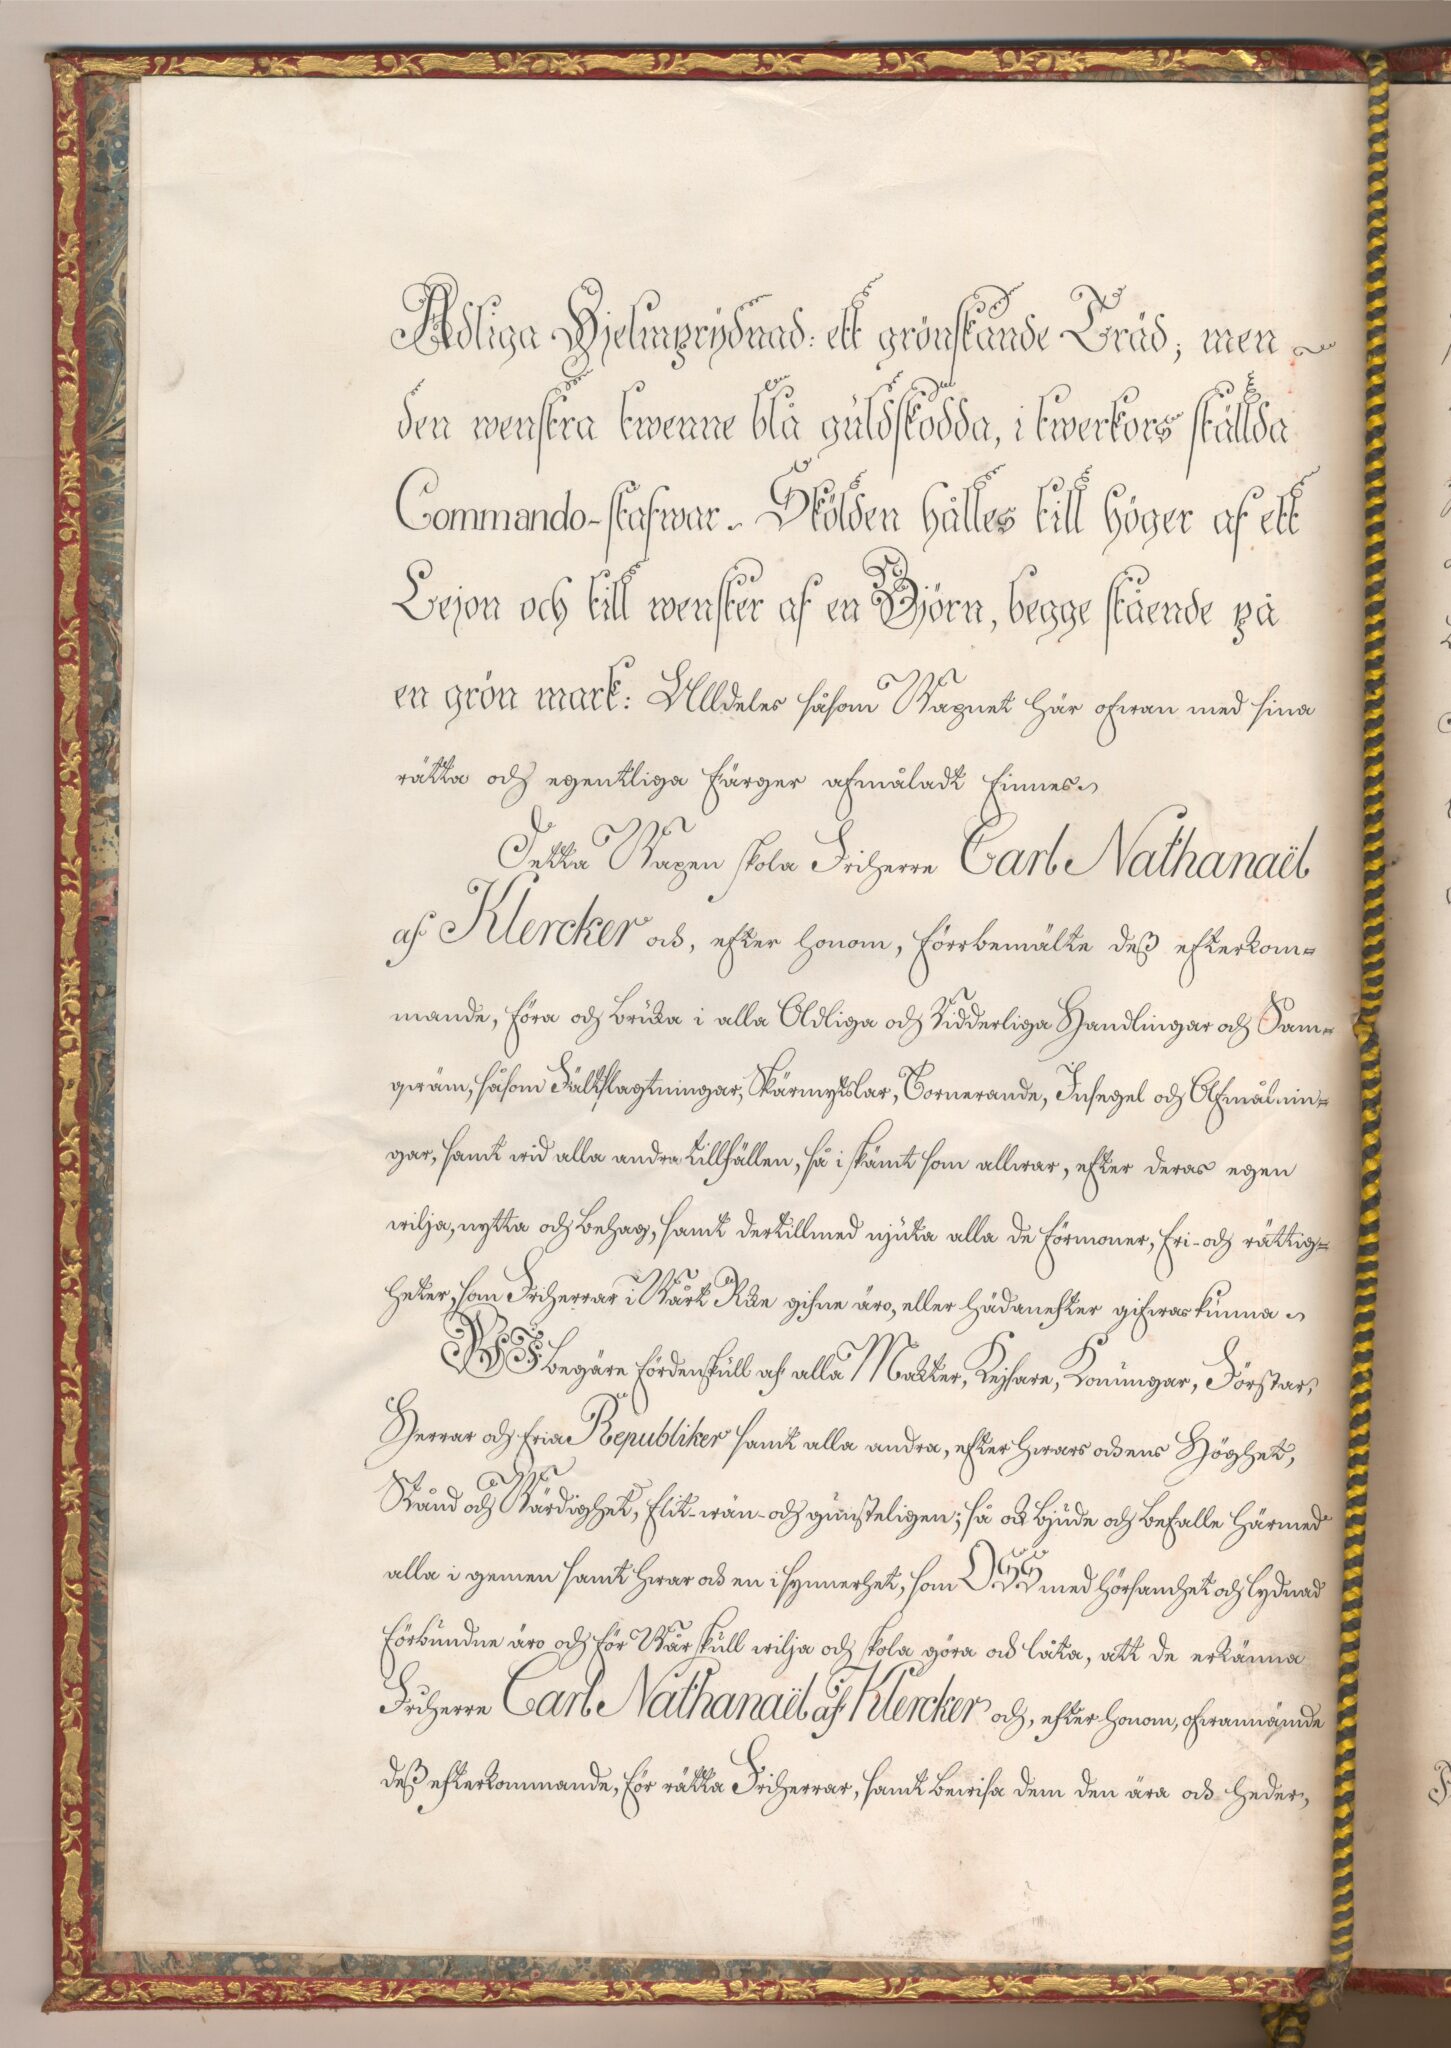 Adliga Hjelmprydnad: ett grönskande Träd; men
den wenstra twenne blå guldskodda, i twerkors ställda
Commando-stafwar. Skölden hålles till höger af ett
Lejon och till wenster af en Björn, begge stående på
en grön mark: Alldeles såsom Wapnet här ofwan med sina
rätta och egentliga färger afmåladt finnes.
Detta Wapen skola Friherre Carl Nathanaël
af Klercker och, efter honom, förrbemälte deß efterkom-
mande, föra och bruka i alla Adliga och Ridderliga Handlingar och Sam-
qwäm, såsom Fältslagtningar, Skärmytslar, Tornerande, Insegel och Afmålnin-
gar, samt wid alla andra tillfällen, så i skämt som allwar, efter deras egen
wilja, nytta och behag, samt dertillmed njuta alla de förmoner, fri- och rättig-
heter, som Friherrar i Wårt Rike gifne äro, eller hädanefter gifwas kunna.
WI begäre fördenskull af alla Makter, Kejsare, Konungar, Förstar,
Herrar och fria Republiker samt alla andra, efter hwars och ens Höghet,
Stånd och Wärdighet, flit- wän- och gunsteligen; så ock bjude och befalle härmed
alla i gemen samt hwar och en i synnerhet, som OSS med hörsamhet och lydnad
förbundne äro och för Wår skull wilja och skola göra och låta, att de erkänna
Friherre Carl Nathanaël af Klercker och, efter honom, ofwannämde
deß efterkommande, för rätta Friherrar, samt bewisa dem den ära och heder,